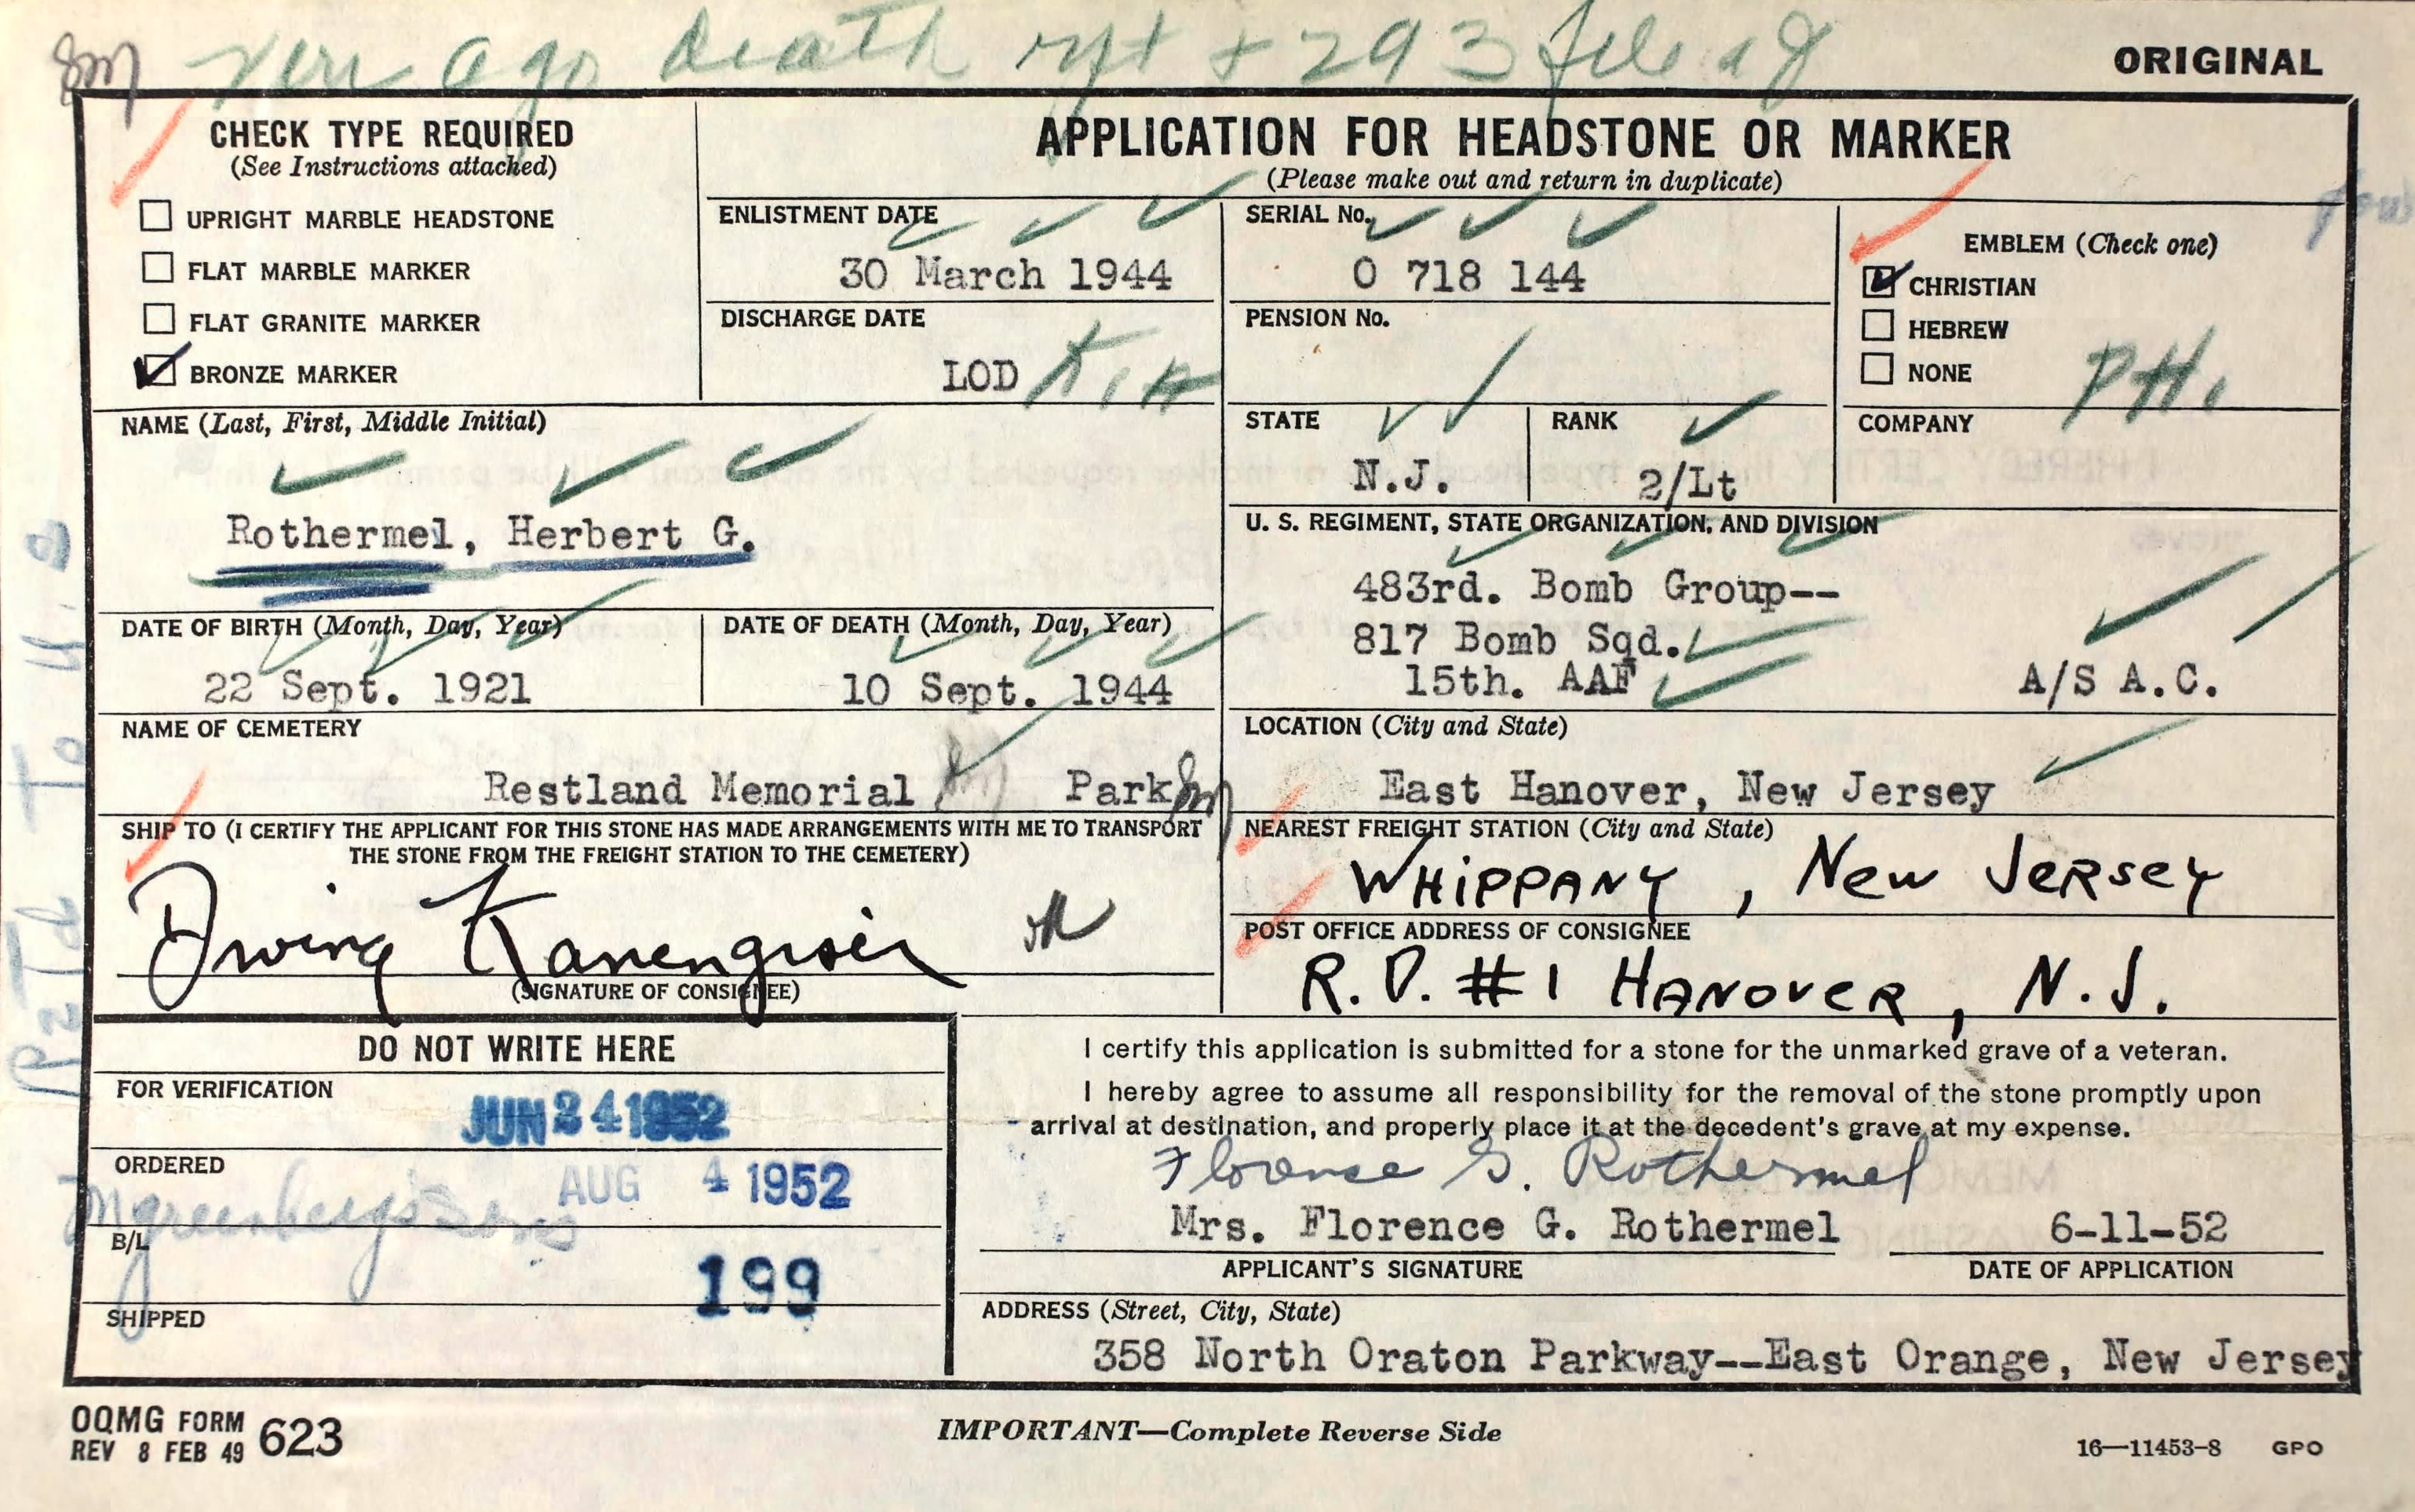 Veri ago death rpt + 293 file
ORIGINAL
CHECK TYPE REQUIRED
(See Instructions attached)
☐ UPRIGHT MARBLE HEADSTONE
☐ FLAT MARBLE MARKER
☐ FLAT GRANITE MARKER
☑ BRONZE MARKER
APPLICATION FOR HEADSTONE OR MARKER
(Please make out and return in duplicate)
ENLISTMENT DATE
30 March 1944
SERIAL No.
O 718 144
EMBLEM (Check one)
☑ CHRISTIAN
☐ HEBREW
☐ NONE
PH.
DISCHARGE DATE
LOD K.I.A
PENSION No.
NAME (Last, First, Middle Initial)
Rothermel, Herbert G.
STATE
N.J.
RANK
2/Lt
COMPANY
U. S. REGIMENT, STATE ORGANIZATION, AND DIVISION
483rd. Bomb Group--
817 Bomb Sqd.
15th. AAF A/S A.C.
DATE OF BIRTH (Month, Day, Year)
22 Sept. 1921
DATE OF DEATH (Month, Day, Year)
10 Sept. 1944
NAME OF CEMETERY
Restland Memorial Park
LOCATION (City and State)
East Hanover, New Jersey
SHIP TO (I CERTIFY THE APPLICANT FOR THIS STONE HAS MADE ARRANGEMENTS WITH ME TO TRANSPORT
THE STONE FROM THE FREIGHT STATION TO THE CEMETERY)
Irving Kanengiser
(SIGNATURE OF CONSIGNEE)
NEAREST FREIGHT STATION (City and State)
WHIPPANY, NEW JERSEY
POST OFFICE ADDRESS OF CONSIGNEE
R.D. #1 HANOVER, N.J.
DO NOT WRITE HERE
FOR VERIFICATION
JUN 24 1952
ORDERED
AUG 4 1952
M greenbergs sons
B/L
199
SHIPPED
I certify this application is submitted for a stone for the unmarked grave of a veteran.
I hereby agree to assume all responsibility for the removal of the stone promptly upon
arrival at destination, and properly place it at the decedent's grave at my expense.
Florence G. Rothermel
Mrs. Florence G. Rothermel 6-11-52
APPLICANT'S SIGNATURE DATE OF APPLICATION
ADDRESS (Street, City, State)
358 North Oraton Parkway--East Orange, New Jersey
OQMG FORM 623
REV 8 FEB 49
IMPORTANT—Complete Reverse Side
16—11453-8 GPO